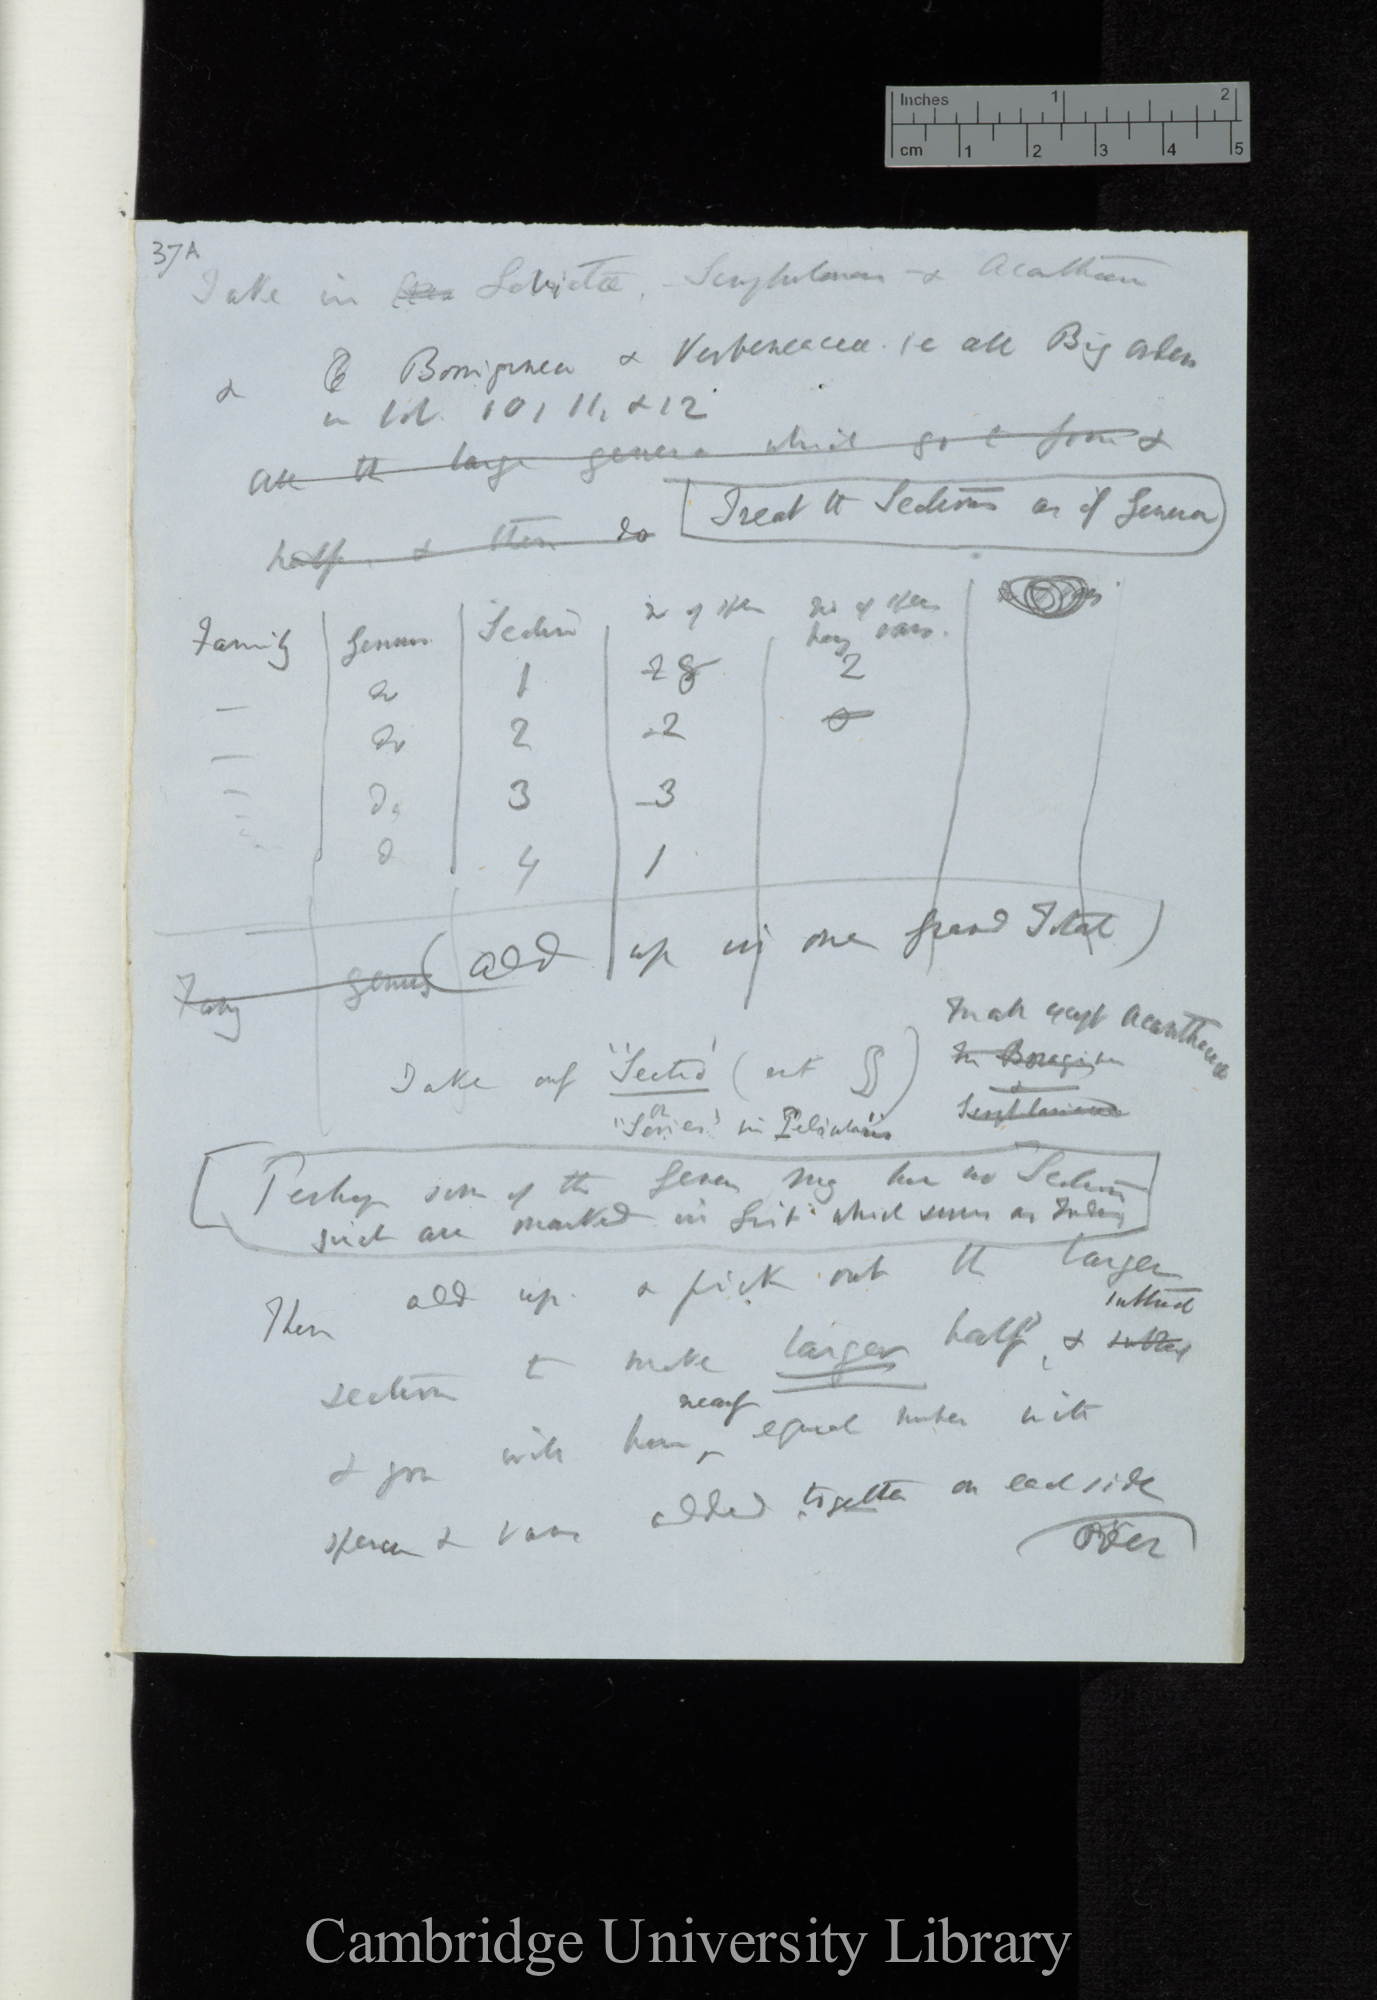 Inches 1 2
cm 1 2 3 4 5
37A
Take in Labiatæ, Scrophularia & Acanthaceæ
& Boraginea & Verbenaceæ. ie all Big orders
in Vol. 10, 11, & 12
all the large genera which go to form &
half & then do
Treat the Sections as if Genera
Family Genus Section No of species No of species having vars.
— do 1 28 2
— do 2 2 0
— do 3 3
do 4 1
(add up in one grand Total)
Family Genus
In all except Acanthaceæ
In Boragineæ
&
Scrophulariaceæ
Take only "Sectio" (not §§)
or "Series" in
Perhaps some of the Genera may have no Sections
such are marked in list which serves as Index
Then add up & pick out the larger
section to make larger half, & subtract
& you will have nearly equal number with
species & vars added together on each side
Over
Cambridge University Library